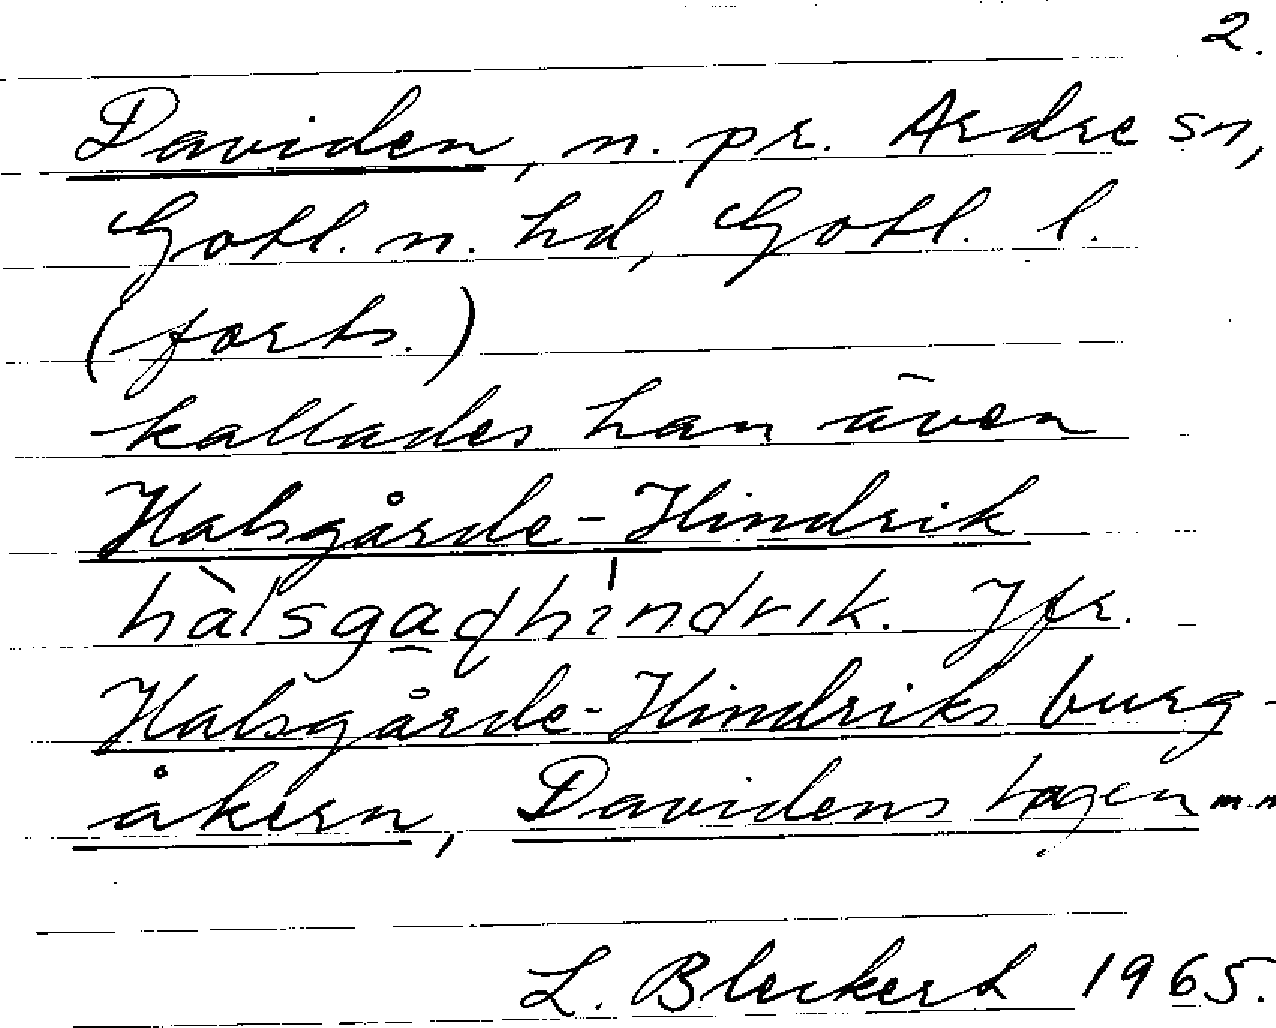 2.
Daviden, n. pr. Ardre sn,
Gotl. n. hd, Gotl. l.
(forts.)
kallades han även
Halsgårde-Hindrik
hàlsgaɖhìndrik. Jfr.
Halsgårde-Hindriks burg-
åkern, Davidens hagen m.m
L. Bleckert 1965.